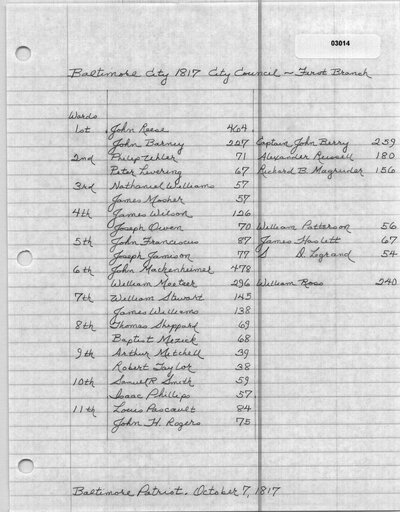 03014
Baltimore City 1817 City Council ~ First Branch
Wards
1st John Reese 464
John Barney 227 Captain John Berry 259
2nd Philip Uhler 71 Alexander Russell 180
Peter Levering 67 Richard B. Magruder 156
3rd Nathaniel Williams 57
James Mosher 57
4th James Wilson 126
Joseph Owen 70 William Patterson 56
5th John Franciscus 87 James Haslett 67
Joseph Jamison 77 S D. Legrand 54
6th John Mackenheimer 478
William Meeteer 296 William Ross 240
7th William Stewart 145
James Williams 138
8th Thomas Sheppard 69
Baptist Mezick 68
9th Arthur Mitchell 39
Robert Taylor 38
10th Samuel R. Smith 59
Isaac Phillips 57
11th Louis Pascault 84
John H. Rogers 75
Baltimore Patriot, October 7, 1817